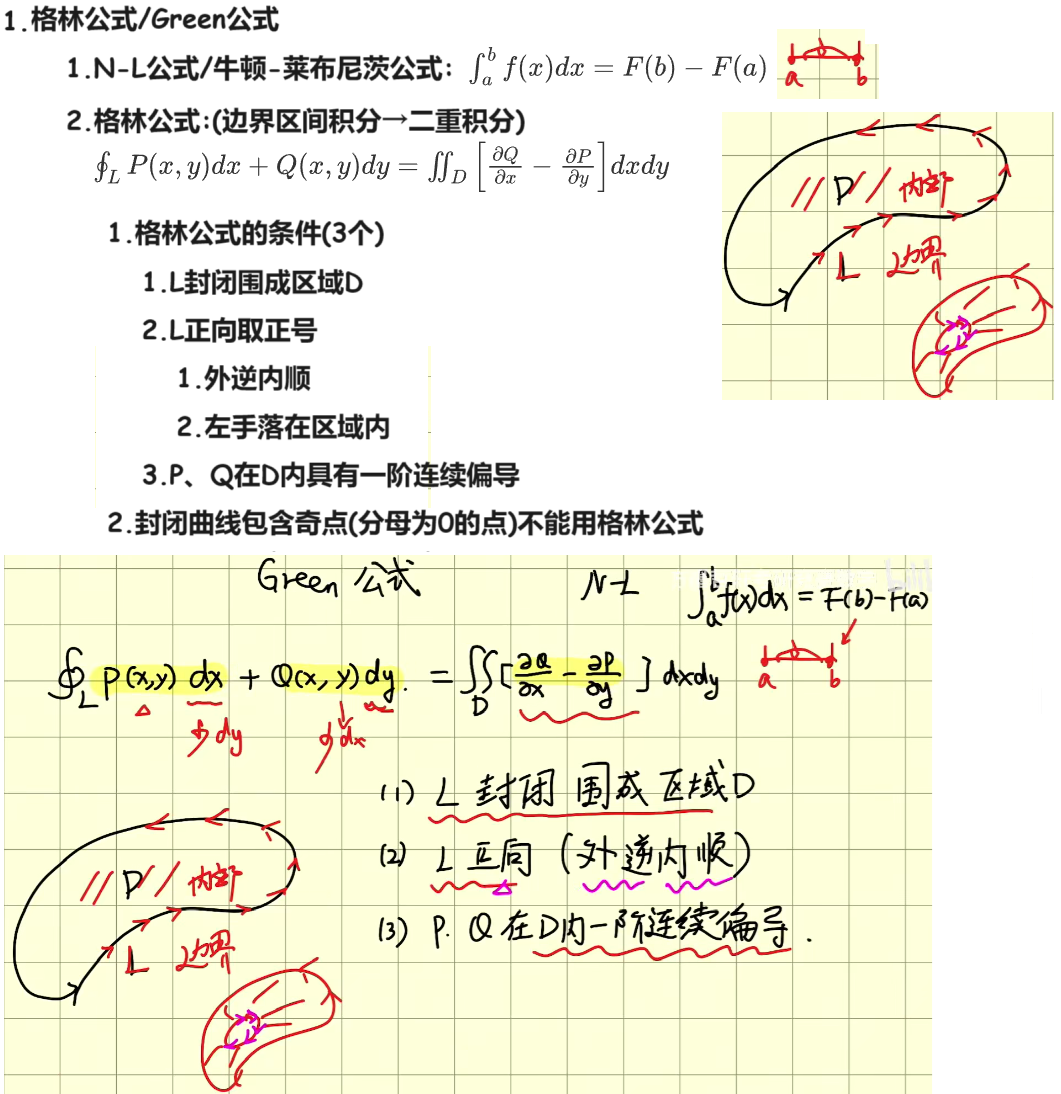 1.格林公式/Green公式
1.N-L公式/牛顿-莱布尼茨公式：∫_a^b f(x)dx = F(b) − F(a)
a b
2.格林公式:(边界区间积分→二重积分)
∮_L P(x, y)dx + Q(x, y)dy = ∬_D [∂Q/∂x − ∂P/∂y] dxdy
D 内部
L 边界
1.格林公式的条件(3个)
1.L封闭围成区域D
2.L正向取正号
1.外逆内顺
2.左手落在区域内
3.P、Q在D内具有一阶连续偏导
2.封闭曲线包含奇点(分母为0的点)不能用格林公式
Green 公式 N-L ∫_a^b f(x)dx = F(b)-F(a)
∮_L P(x,y) dx + Q(x, y) dy. = ∬_D [∂Q/∂x − ∂P/∂y] dxdy
a b
dy dx
(1) L 封闭 围成 区域D
(2) L 正向 (外逆内顺)
(3) P. Q 在D内一阶连续偏导.
D 内部
L 边界